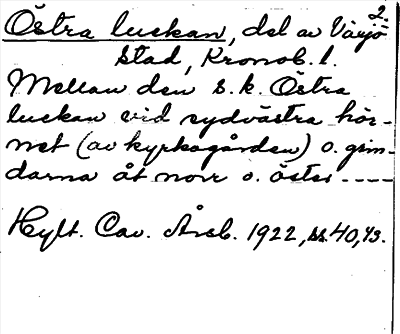 2.
Östra luckan, del av Växjö
stad, Kronob. l.
Mellan den s.k. Östra
luckan vid sydvästra hör-
net (av kyrkogården) o. grin-
darna åt norr o. öster ----
Hylt. Cav. Årsb. 1922, ss. 40, 43.